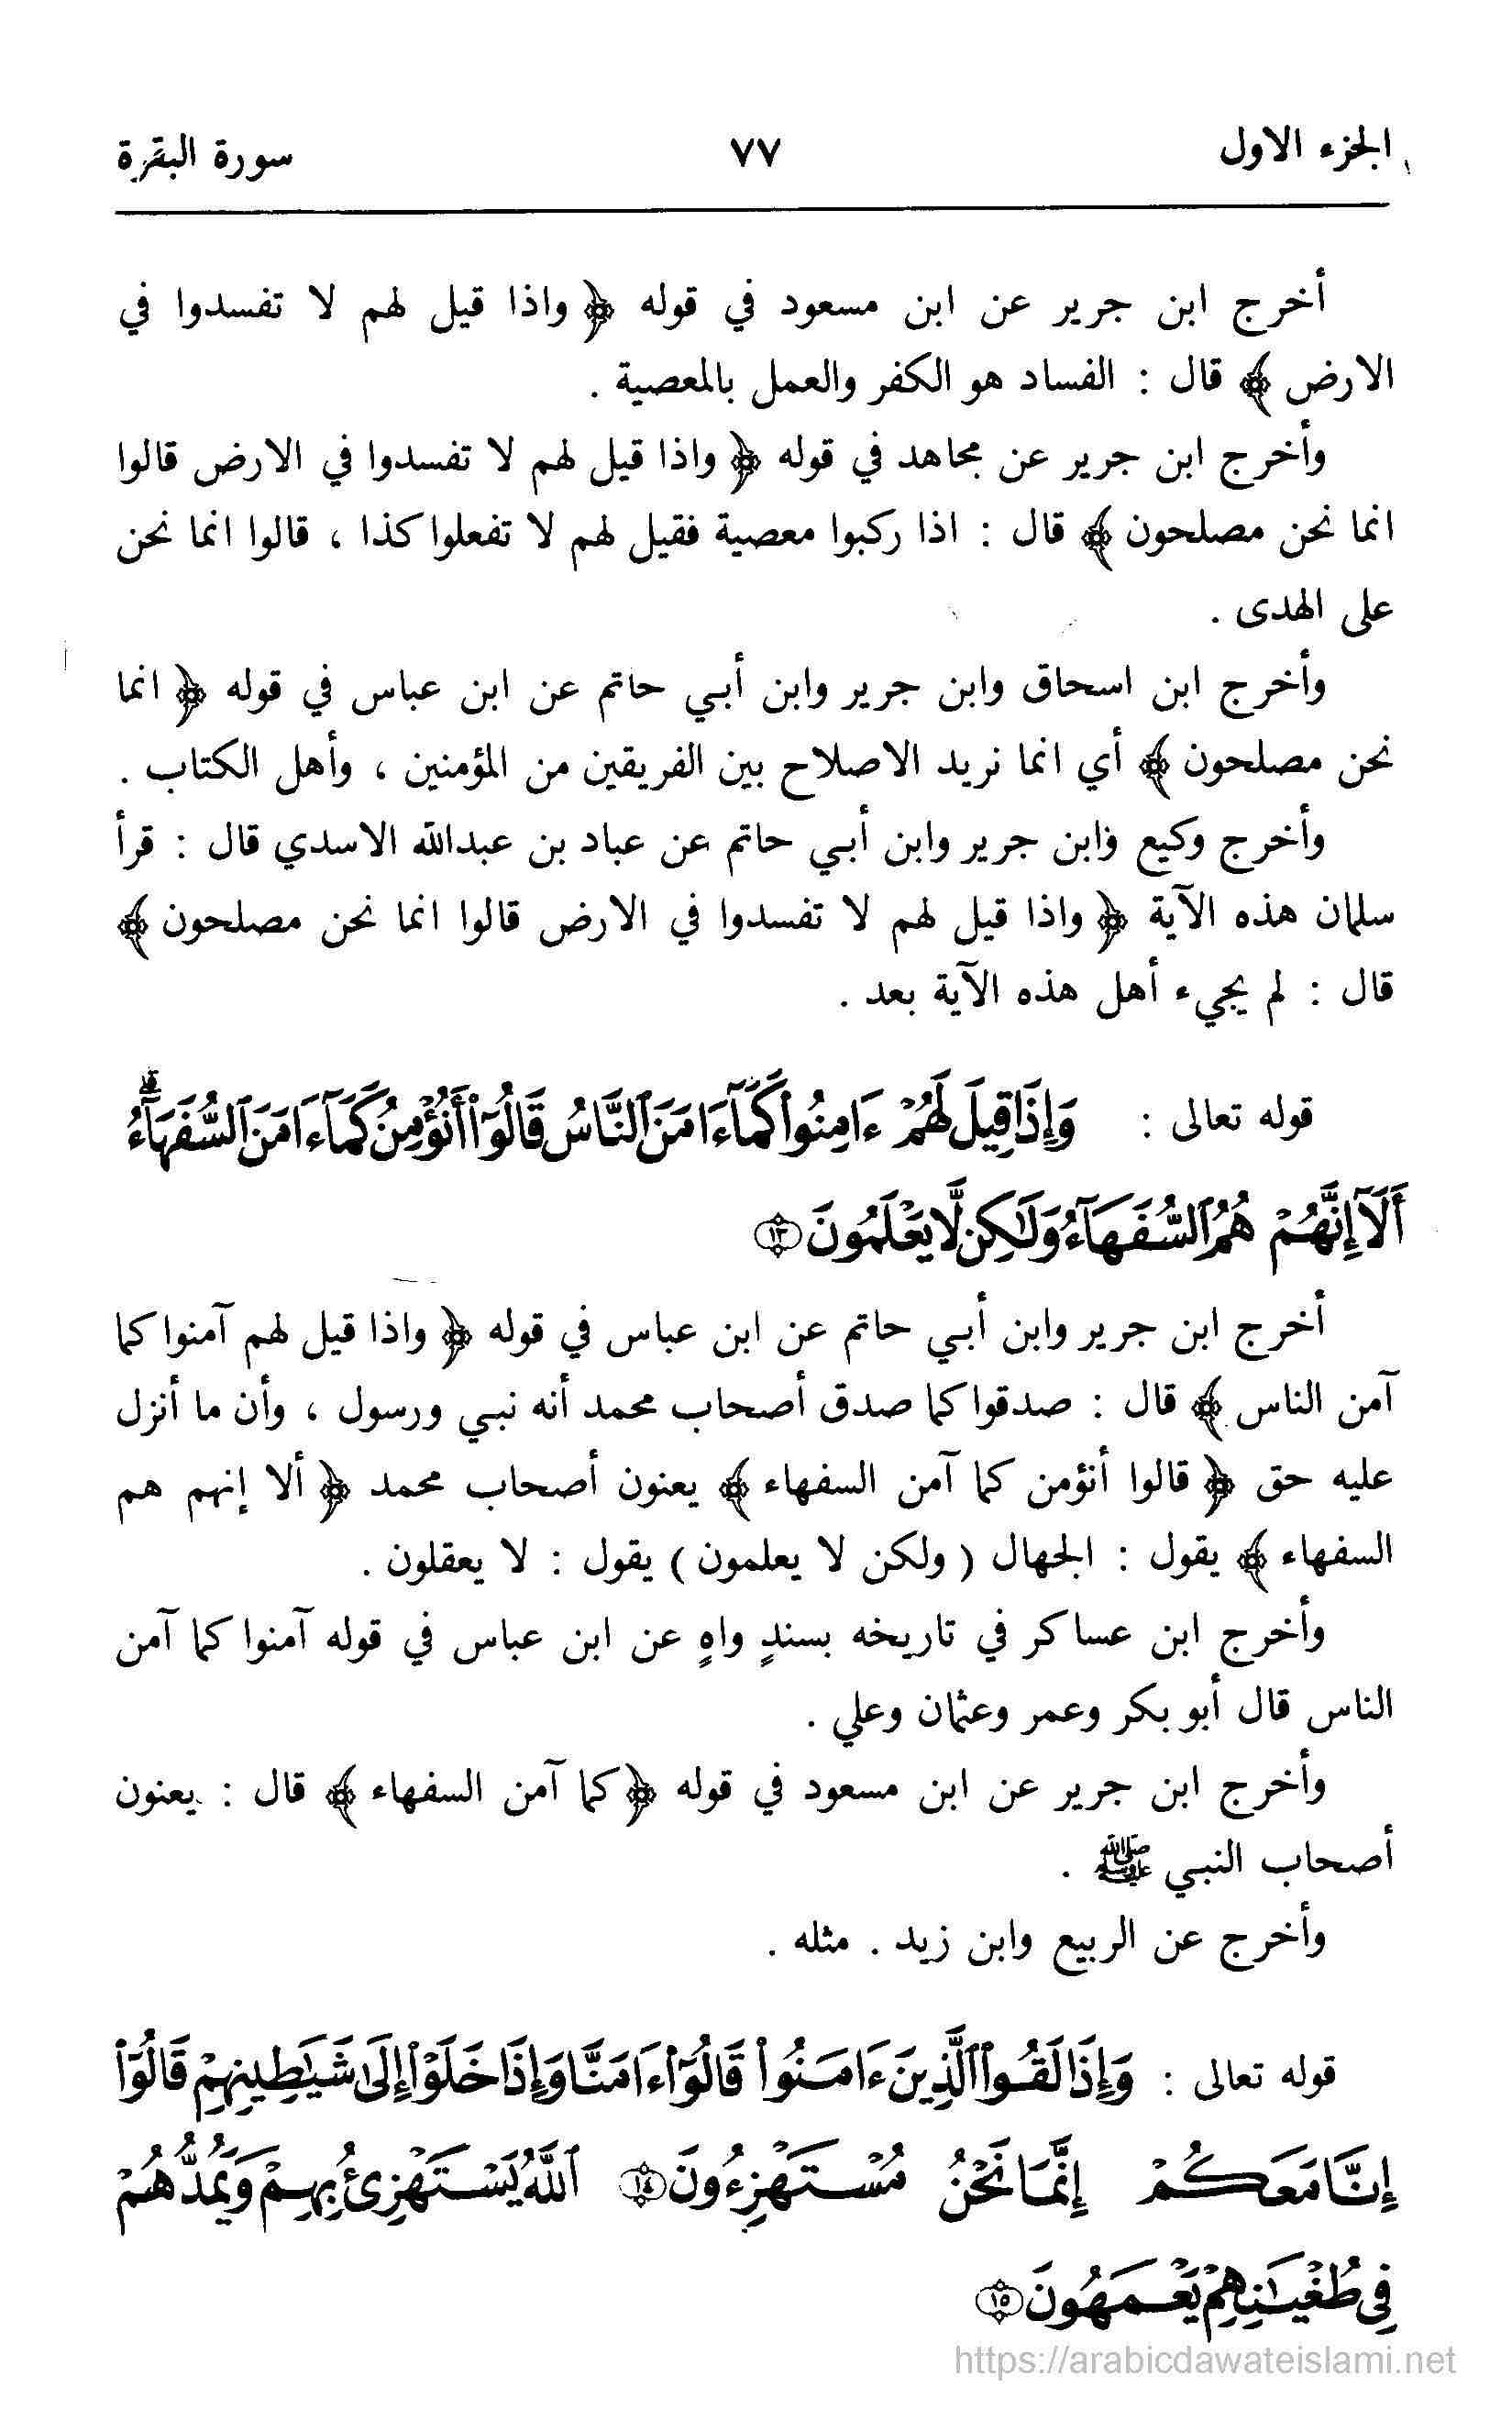 الجزء الاول ٧٧ سورة البقرة
أخرج ابن جرير عن ابن مسعود في قوله ﴿ واذا قيل لهم لا تفسدوا في
الارض ﴾ قال : الفساد هو الكفر والعمل بالمعصية .
وأخرج ابن جرير عن مجاهد في قوله ﴿ واذا قيل لهم لا تفسدوا في الارض قالوا
انما نحن مصلحون ﴾ قال : اذا ركبوا معصية فقيل لهم لا تفعلوا كذا ، قالوا انما نحن
على الهدى .
وأخرج ابن اسحاق وابن جرير وابن أبي حاتم عن ابن عباس في قوله ﴿ انما
نحن مصلحون ﴾ أي انما نريد الاصلاح بين الفريقين من المؤمنين ، وأهل الكتاب .
وأخرج وكيع وابن جرير وابن أبي حاتم عن عباد بن عبدالله الاسدي قال : قرأ
سلمان هذه الآية ﴿ واذا قيل لهم لا تفسدوا في الارض قالوا انما نحن مصلحون ﴾
قال : لم يجيء أهل هذه الآية بعد .
قوله تعالى : وَإِذَا قِيلَ لَهُمْ ءَامِنُوا۟ كَمَآ ءَامَنَ ٱلنَّاسُ قَالُوٓا۟ أَنُؤْمِنُ كَمَآ ءَامَنَ ٱلسُّفَهَآءُ ۗ
أَلَآ إِنَّهُمْ هُمُ ٱلسُّفَهَآءُ وَلَٰكِن لَّا يَعْلَمُونَ ١٣
أخرج ابن جرير وابن أبي حاتم عن ابن عباس في قوله ﴿ واذا قيل لهم آمنوا كما
آمن الناس ﴾ قال : صدقوا كما صدق أصحاب محمد أنه نبي ورسول ، وأن ما أنزل
عليه حق ﴿ قالوا أنؤمن كما آمن السفهاء ﴾ يعنون أصحاب محمد ﴿ ألا إنهم هم
السفهاء ﴾ يقول : الجهال ( ولكن لا يعلمون ) يقول : لا يعقلون .
وأخرج ابن عساكر في تاريخه بسندٍ واهٍ عن ابن عباس في قوله آمنوا كما آمن
الناس قال أبو بكر وعمر وعثمان وعلي .
وأخرج ابن جرير عن ابن مسعود في قوله ﴿ كما آمن السفهاء ﴾ قال : يعنون
أصحاب النبي ﷺ .
وأخرج عن الربيع وابن زيد . مثله .
قوله تعالى : وَإِذَا لَقُوا۟ ٱلَّذِينَ ءَامَنُوا۟ قَالُوٓا۟ ءَامَنَّا وَإِذَا خَلَوْا۟ إِلَىٰ شَيَٰطِينِهِمْ قَالُوٓا۟
إِنَّا مَعَكُمْ إِنَّمَا نَحْنُ مُسْتَهْزِءُونَ ١٤ ٱللَّهُ يَسْتَهْزِئُ بِهِمْ وَيَمُدُّهُمْ
فِى طُغْيَٰنِهِمْ يَعْمَهُونَ ١٥
https://arabicdawateislami.net